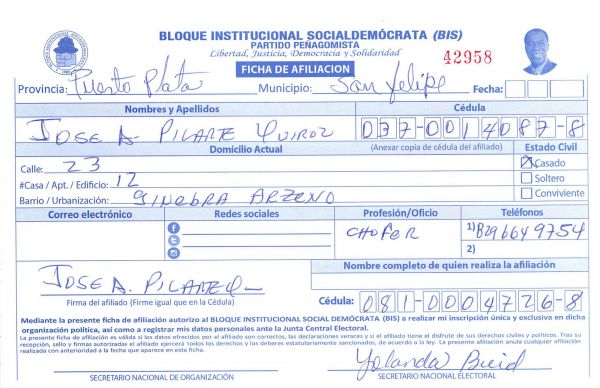 BLOQUE INSTITUCIONAL SOCIALDEMÓCRATA (BIS)
PARTIDO PEÑAGOMISTA
Libertad, Justicia, Democracia y Solidaridad
42958
FICHA DE AFILIACION
Provincia: Puerto Plata Municipio: San Felipe Fecha:
Nombres y Apellidos Cédula
JOSE A. PILARTE QUIROZ 037-0014087-8
Domicilio Actual (Anexar copia de cédula del afiliado) Estado Civil
Calle: 23 Casado
#Casa / Apt. / Edificio: 12 Soltero
Barrio / Urbanización: GINEBRA ARZENO Conviviente
Correo electrónico Redes sociales Profesión/Oficio Teléfonos
CHOFER 1) 829 664 9754
2)
Nombre completo de quien realiza la afiliación
JOSE A. PILARTE Q
Firma del afiliado (Firme igual que en la Cédula)
Cédula: 081-0004726-8
Mediante la presente ficha de afiliación autorizo al BLOQUE INSTITUCIONAL SOCIAL DEMÓCRATA (BIS) a realizar mi inscripción única y exclusiva en dicha
organización política, así como a registrar mis datos personales ante la Junta Central Electoral.
La presente ficha de afiliación es válida si los datos ofrecidos por el afiliado son correctos, las declaraciones veraces y si el afiliado tiene el disfrute de sus derechos civiles y políticos. Tras su
recepción, sello y firmas autorizadas el afiliado ejercerá todos los derechos y los deberes estatutariamente sancionados, de acuerdo a la ley. La presente afiliación anula cualquier afiliación
realizada con anterioridad a la fecha que aparece en esta ficha.
Yolanda
SECRETARIO NACIONAL DE ORGANIZACIÓN SECRETARIO NACIONAL ELECTORAL